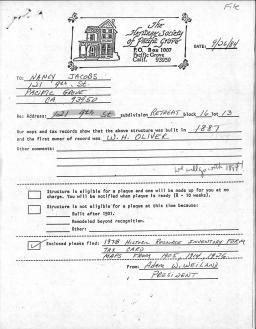 File
The
Heritage Society
of Pacific Grove
P.O. Box 1007
Pacific Grove
Calif. 93950
DATE: 9/26/84
TO: NANCY JACOBS
121 9th St.
PACIFIC GROVE
CA 93950
Re: Address: 121 9th St subdivision RETREAT block 16 lot 13
Our maps and tax records show that the above structure was built in 1887
and the first owner of record was W.H. OLIVER
Other comments:
we will go with 1887!
Structure is eligible for a plaque and one will be made up for you at no
charge. You will be notified when plaque is ready (8 - 10 weeks).
Structure is not eligible for a plaque at this time because:
Built after 1901.
Remodeled beyond recognition.
Other:
Enclosed please find: 1978 HISTORIC RESOURCE INVENTORY FORM
TAX CARD
MAPS FROM 1905, 1914, 1926
From: ADAM W. WEILAND
PRESIDENT